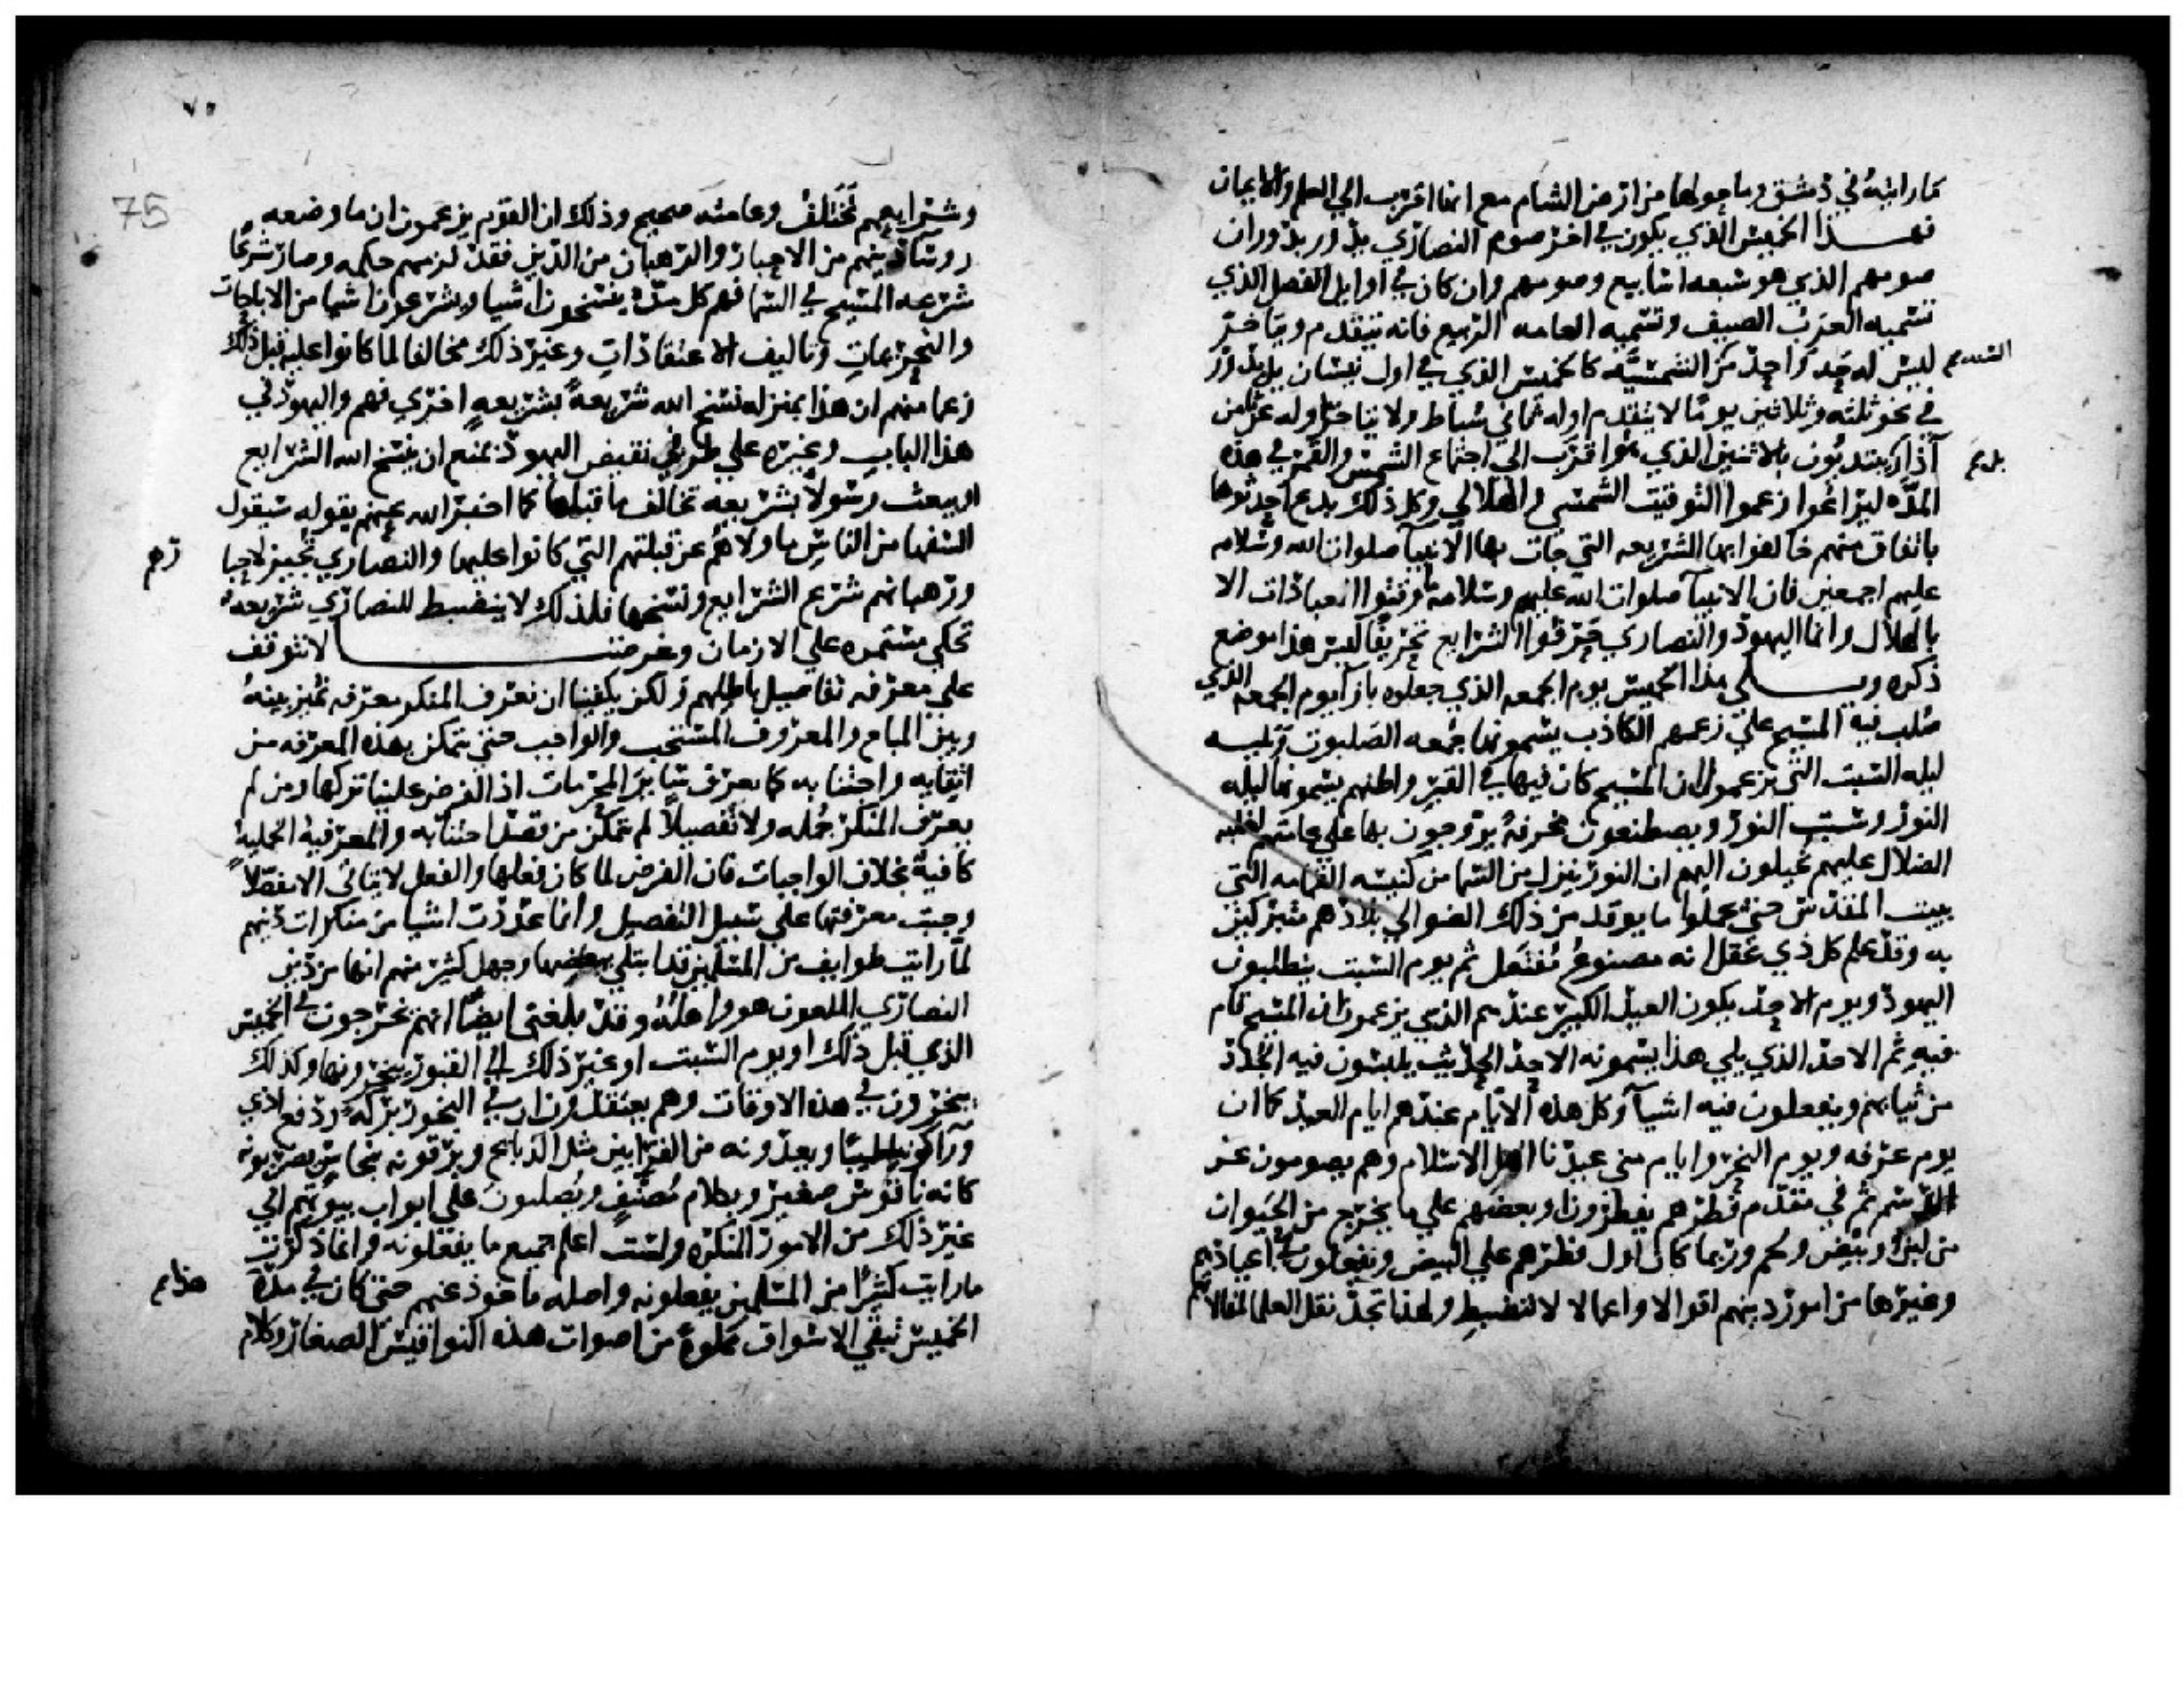 كما رايته في دمشق وما حولها من ارض الشام مع انها اقرب الي العلم والايمان
فهذا الخميس الذي يكون في اخر صوم النصاري يدور بدوران
صومهم الذي هو سبعه اسابيع وصومهم وان كان في اوايل الفصل الذي
تسميه العرب الصيف وتسميه العامه الربيع فانه يتقدم ويتاخر
ليس له حد واحد من السنه الشمسيه كالخميس الذي في اول نيسان بل يدور
في نحو ثلثه وثلاثين يوما لا يتقدم اوله ثماني شباط ولا يتاخر اوله عن ثامن
آذار يبتديون بالاثنين الذي هو اقرب الي اجتماع الشمس والقمر في هذه
المده ليراعوا زعموا التوقيت الشمسي والهلالي وكل ذلك بدع احدثوها
باتفاق منهم خالفوا بها الشريعه التي جات بها الانبيا صلوات الله وسلامه
عليهم اجمعين فان الانبيا صلوات الله عليهم وسلامه ما وقتوا العبادات الا
بالهلال وانما اليهود والنصاري حرفوا الشرايع تحريفا ليس هذا موضع
ذكره ويلي هذا الخميس يوم الجمعه الذي جعلوه بازا يوم الجمعه الذي
صلب فيه المسيح علي زعمهم الكاذب يسمونها جمعه الصلبوت ويليه
ليله السبت التي يزعمون ان المسيح كان فيها في القبر واظنهم يسمونها ليله
النور وسبت النور ويصطنعون مخرقة يروجون بها علي عامتهم لغلبه
الضلال عليهم يخيلون اليهم ان النور ينزل من السما من كنيسه القمامه التي
ببيت المقدس حتي يحملوا ما يوقد من ذلك الضو الي بلادهم متبركين
به وقد علم كل ذي عقل انه مصنوع مفتعل ثم يوم السبت يتطلبون
اليهود ويوم الاحد يكون العيد الكبير عندهم الذي يزعمون ان المسيح قام
فيه ثم الاحد الذي يلي هذا يسمونه الاحد الحديث يلبسون فيه الجدد
من ثيابهم ويفعلون فيه اشيا وكل هذه الايام عندهم ايام العيد كما ان
يوم عرفه ويوم النحر وايام مني عيدنا اهل الاسلام وهم يصومون عن
الدسم ثم في مقدم فطرهم يفطرون او بعضهم علي ما يخرج من الحيوان
من لبن وبيض ولحم وربما كان اول فطرهم علي البيض ويفعلون في اعيادهم
وغيرها من امور دينهم اقوالا واعمالا لا تنضبط ولهذا تجد نقل العلما لمقالاتهم
٧٥
75
وشرايعهم تختلف وعامته صحيح وذلك ان القوم يزعمون ان ما وضعه
روسا دينهم من الاحبار والرهبان من الدين فقد لزمهم حكمه وصار شرعا
شرعه المسيح في السما فهم كل مده ينسخون اشيا ويشرعون اشيا من الاباحات
والتحريمات وتاليف الاعتقادات وغير ذلك مخالفا لما كانوا عليه قبل ذلك
زعما منهم ان هذا بمنزله نسخ الله شريعة بشريعة اخري فهم واليهود في
هذا الباب وغيره علي طرفي نقيض اليهود تمنع ان ينسخ الله الشرايع
او يبعث رسولا بشريعه تخالف ما قبلها كما اخبر الله عنهم بقوله سيقول
السفها من الناس ما ولاهم عن قبلتهم التي كانوا عليها والنصاري تجيز لاحبارهم
ورهبانهم شرع الشرايع ونسخها فلذلك لا ينضبط للنصاري شريعه
تحكي مستمره علي الازمان وغرضنا لا يتوقف
علي معرفه تفاصيل باطلهم ولكن يكفينا ان نعرف المنكر معرفه تميز بينه
وبين المباح والمعروف المستحب والواجب حتي نتمكن بهذه المعرفه من
اتقايه واجتنابه كما نعرف ساير المحرمات اذ الفرض علينا تركها ومن لم
يعرف المنكر جمله ولا تفصيلا لم يتمكن من قصد اجتنابه والمعرفة الجملية
كافية بخلاف الواجبات فان الفرض لما كان فعلها والفعل لا يتاتي الا مفصلا
وجبت معرفتها علي سبيل التفصيل وانما عددت اشيا من منكرات دينهم
لما رايت طوايف من المسلمين قد ابتلي ببعضها وجهل كثير منهم انها من دين
النصاري الملعون هو واهله وقد بلغني ايضا انهم يخرجون في الخميس
الذي قبل ذلك او يوم السبت او غير ذلك الي القبور يبخرونها وكذلك
يبخرون في هذه الاوقات وهم يعتقدون ان في البخور بركة ودفع اذي
ورا كونه طيبا ويعدونه من القرابين مثل الذبايح ويزفونه بنحاس يضربونه
كانه ناقوس صغير وبكلام مصنف ويصلبون علي ابواب بيوتهم الي
غير ذلك من الامور المنكره ولست اعلم جميع ما يفعلونه وانما ذكرت
ما رايت كثيرا من المسلمين يفعلونه واصله ماخوذ عنهم حتي كان في مده
الخميس تبقي الاسواق مملوة من اصوات هذه النواقيس الصغار وكلام